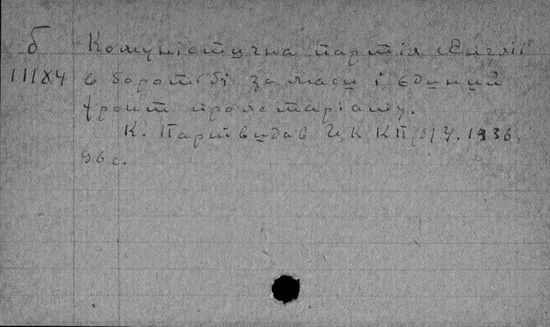 б Комуністична партія Англії
11184 в боротьбі за маси і єдиний
фронт пролетаріату.
К. Партвидав ЦК КП(б)У. 1936.
96 с.